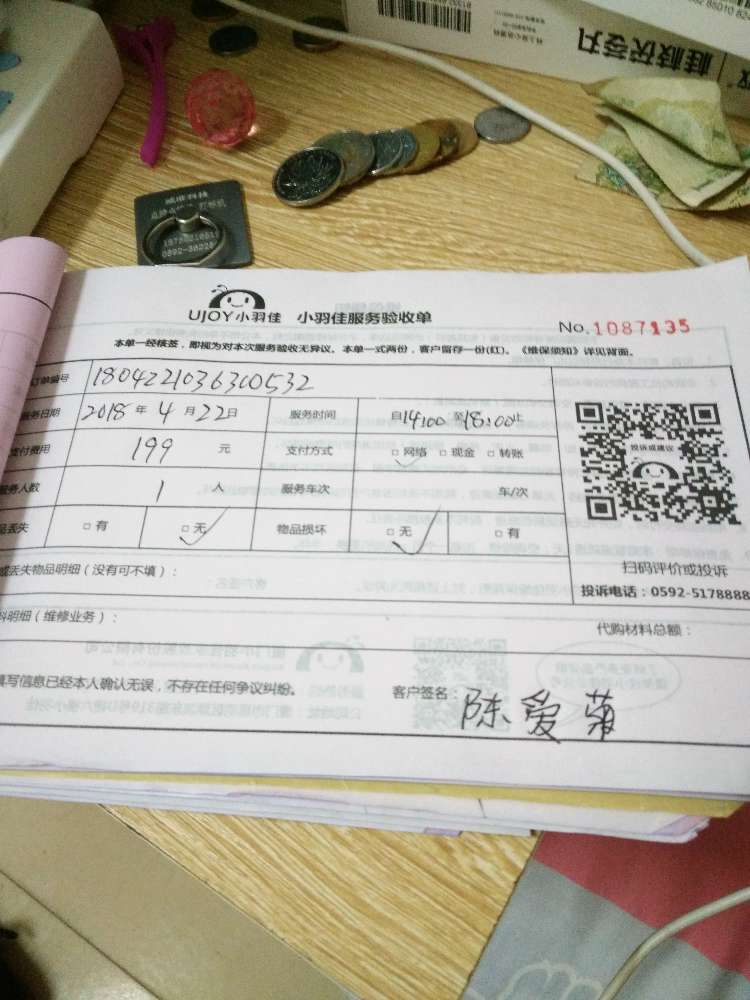 威雅科技
UJOY小羽佳 小羽佳服务验收单
No.1087135
本单一经核签,即视为对本次服务验收无异议。本单一式两份,客户留存一份(红)。《维保须知》详见背面。
订单编号 1804221036300532
服务日期 2018年4月22日 服务时间 自14:00至18:00止
支付费用 199元 支付方式 □网络 □现金 □转账
服务人数 1人 服务车次 车/次
品丢失 □有 □无 物品损坏 □无 □有
投诉或建议
扫码评价或投诉
投诉电话:0592-5178888
或丢失物品明细(没有可不填):
料明细(维修业务): 代购材料总额:
填写信息已经本人确认无误,不存在任何争议纠纷。 客户签名:陈爱菊